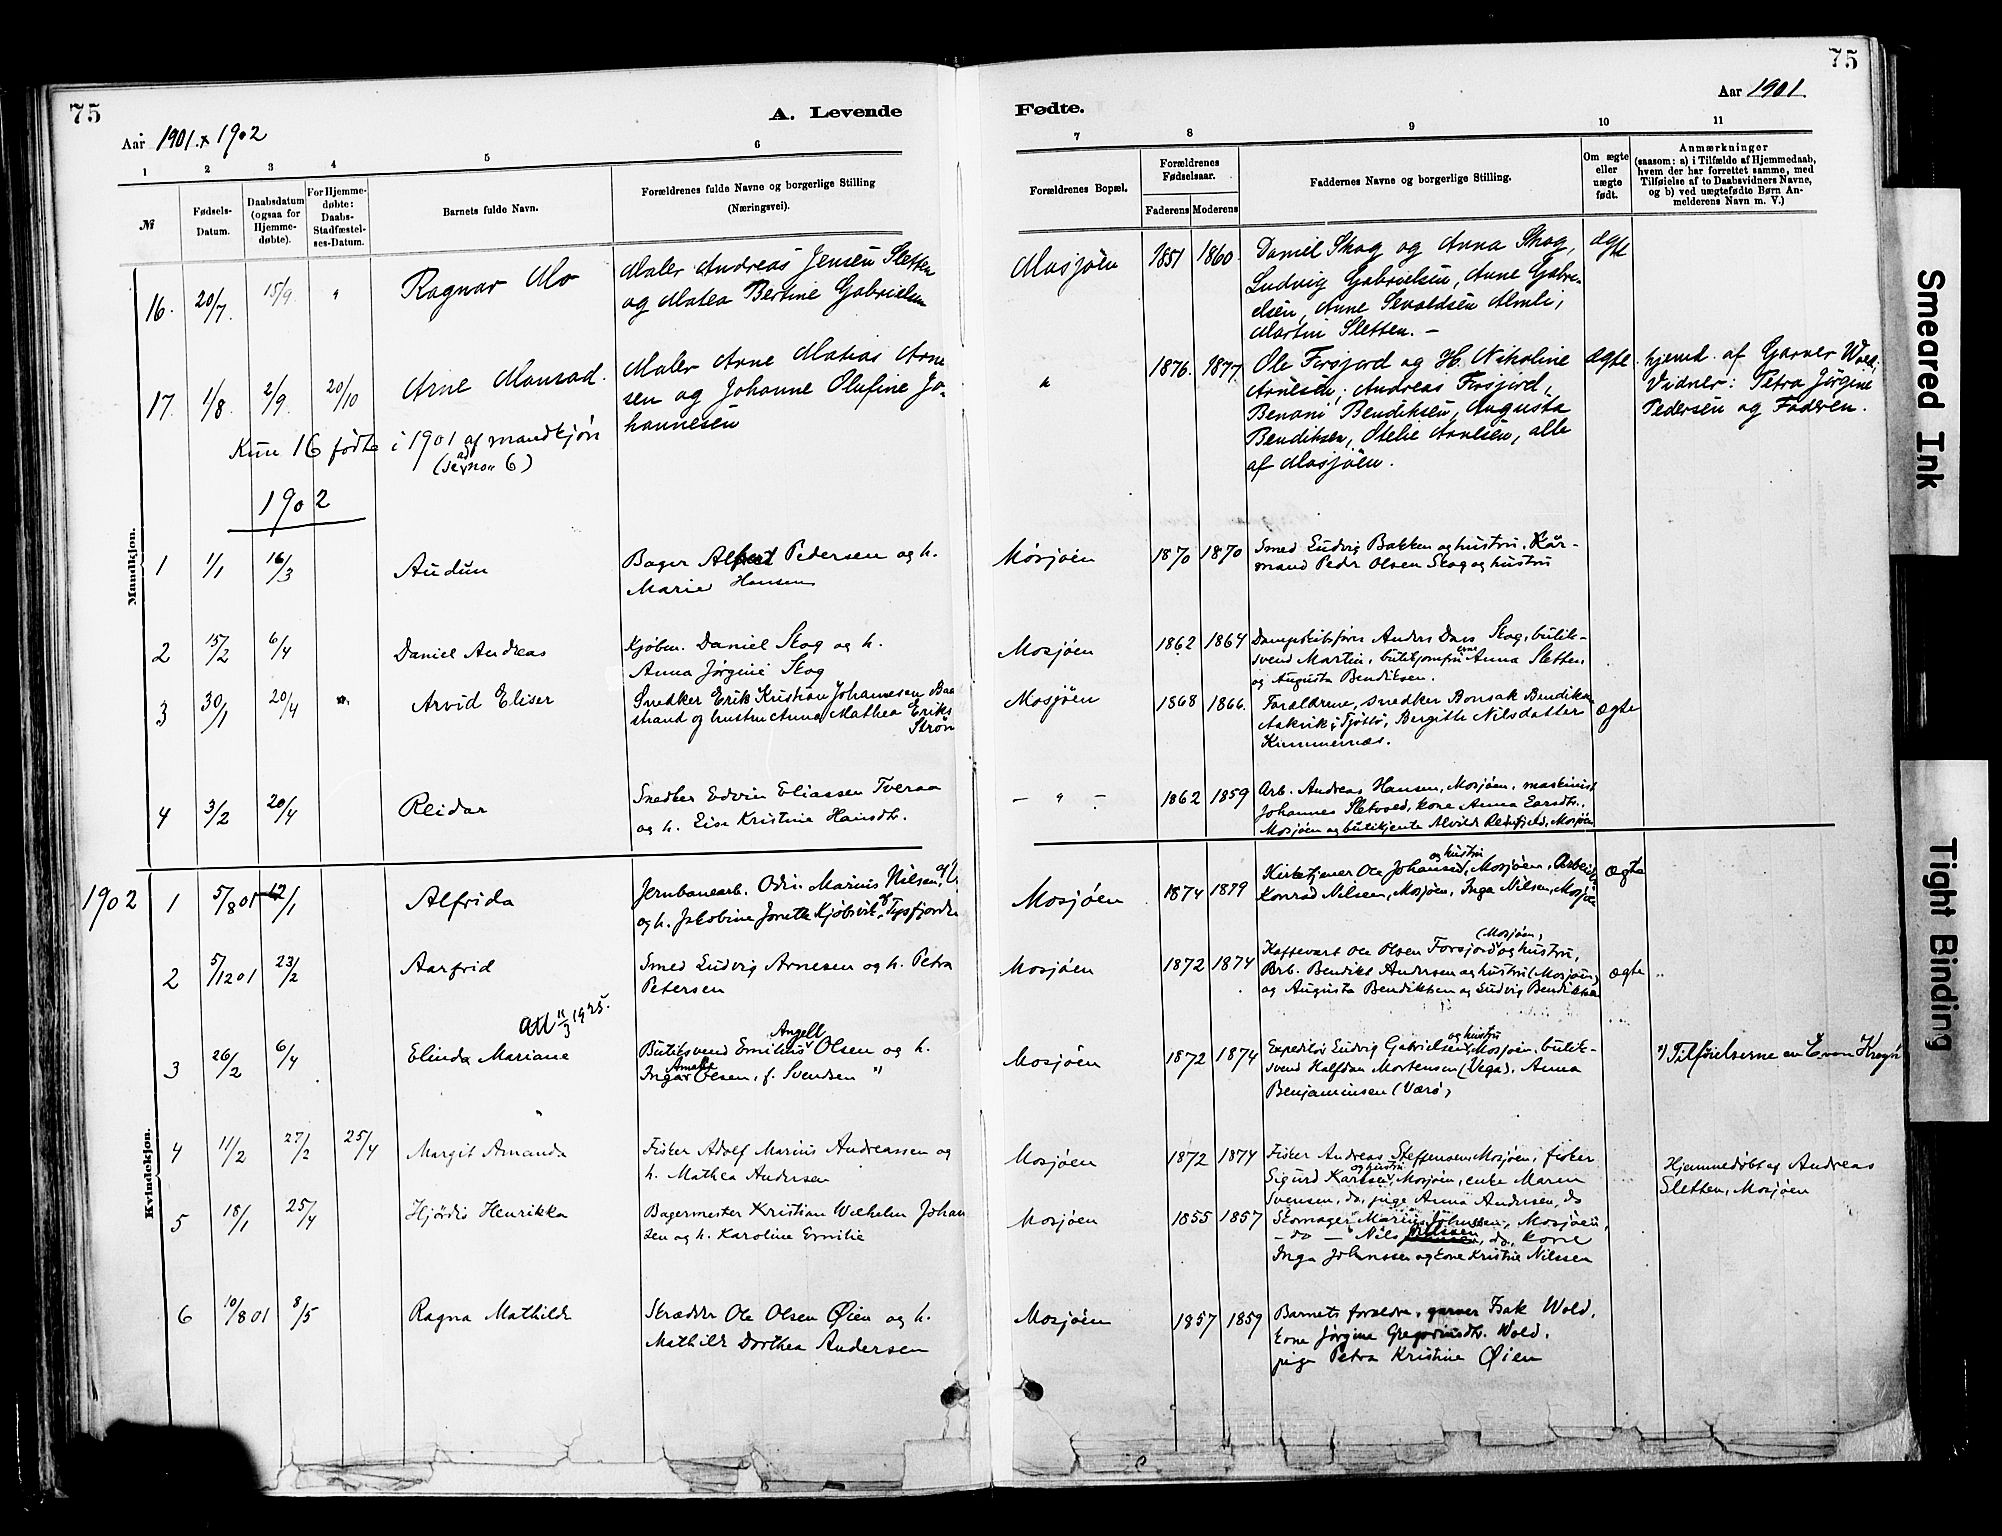 75
A. Levende
Aar 1901 & 1902
1 2 3 4 5 6
№
Fødsels-
Datum.
Daabsdatum
(ogsaa for
Hjemme-
døbte).
For Hjemme-
døbte:
Daabs-
Stadfæstel-
ses-Datum.
Barnets fulde Navn.
Forældrenes fulde Navne og borgerlige Stilling
(Næringsvei).
Mandkjøn.
16. 20/7. 15/9. " Ragnar Mo
Maler Andreas Jensen Sletten
og Matea Bertine Gabrielsen
17. 1/8. 2/9. 20/10 Arne Monrad.
Maler Arne Matias Arne
sen og Johanne Olufine Jo-
hannesen
Kun 16 fødte i 1901 af mandkjøn
(se no 6)
1902
1 1/1 16/3 Audun
Bager Alfred Pedersen og h.
Marie Hansen
2 15/2 6/4 Daniel Andreas
Kjøbm. Daniel Skog og h.
Anna Jørgine Skog
3 30/1 20/4 " Arvid Eliser
Snedker Erik Kristian Johannesen Baa
strand og hustru Anna Mathea Eriks
Strøm
4 3/2 20/4 Reidar
Snedker Edvin Eliassen Tveraa
og h. Elise Kristine Hansdtr.
Kvindekjøn.
1902 1 5/8 01 12/1 Alfrida
Jernbanearb. Odin Marius Nilsen
og h. Jakobine Jonette Kjøbsvik, Tysfjorden
2 5/12 01 23/2 Aarfrid
Smed Ludvig Arnesen og h. Petra
Petersen
Att 11/3 1925.
3 26/2 6/4 Elinda Mariane
Angell
Butiksvend Emilius Olsen og h.
Ingar Olsen, f. Svendsen "
4 11/2 27/2 25/4 Margit Amanda
Fisker Adolf Marius Andreassen og
h. Mathea Andersen
5 18/1 25/4 Hjørdis Henrikka
Bagermester Kristian Wilhelm Johan
sen og h. Karoline Emilie
6 10/8 01 8/5 Ragna Mathilde
Skrædder Ole Olsen Øien og h.
Mathilde Dorthea Andersen
75
Fødte.
Aar 1901
7 8 9 10 11
Forældrenes Bopæl.
Forældrenes
Fødselsaar.
Faderens Moderens
Faddernes Navne og borgerlige Stilling.
Om ægte
eller
uægte
født.
Anmærkninger
(saasom: a) i Tilfælde af Hjemmedaab,
hvem der har forrettet samme, med
Tilføielse af to Daabsvidners Navne,
og b) ved uægtefødte Børn An-
melderens Navn m. V.)
Mosjøen 1851 1860
Daniel Skog og Anna Skog,
Ludvig Gabrielsen, Anne Gabri-
elsen, Anne Sevaldsen Almli,
Martin Sletten. –
ægte
" 1876. 1877.
Ole Forsjord og H. Nikoline
Arnesen; Andreas Forsjord,
Benoni Bendiksen, Augusta
Bendiksen, Otelie Arnesen, alle
af Mosjøen.
ægte
hjemd. af Garver Wold;
Vidner: Petra Jørgine
Pedersen og Faderen.
Mosjøen 1870 1870
Smed Ludvig Bakken og hustru. Kår-
mand Peder Olsen Skog og hustru
Mosjøen 1862 1864
Dampskibsfører Anders Dass Skog, butik-
svend Martin, butikjomfru Anna Sletten
og Augusta Bendiksen.
Mosjøen 1868 1866.
Forældrene, snedker Bonsak Bendiksen
Aakvik i Tjøttø, Bergitte Nilsdatter
Kummernæs.
ægte
– " – 1862 1859
Arb. Andreas Hansen, Mosjøen, maskinist
Johannes Sletvoed, kone Anna Larsdtr.,
Mosjøen og butikjente Alvilde Rødfjeld, Mosjøen
Mosjøen 1874 1879
og hustru
Kirketjener Ole Johansen, Mosjøen, Arbeid
Konrad Nilsen, Mosjøen, Inga Nilsen, Mosjøen
ægte
Mosjøen 1872 1874
(Mosjøen,
Kaffevert Ole Olsen Forsjord og hustru,
Arb. Bendikt Andersen og hustru (Mosjøen)
og Augusta Bendiktsen og Ludvig Bendiktsen
ægte "
Mosjøen 1872 1874
og hustru
Expeditør Ludvig Gabrielsen, Mosjøen, butik-
svend Halfdan Mortensen (Vega), Anna
Benjaminsen (Værø)
Mosjøen 1872 1874
Fisker Andreas Steffensen, Mosjøen, fisker
og hustru
Sigurd Karlsen, Mosjøen, enke Maren
Svensen, do, pige Anna Andersen, do
Hjemmedøbt af Andreas
Sletten, Mosjøen
Mosjøen 1855 1857
Skomager Marius Johnssen, Mosjøen,
– do – Nils Nilssen, do, kone
Inga Johnssen og kone Kristine Nilssen
Mosjøen 1857 1859
Barnets forældre, garver Isak Wold,
kone Jørgine Gregoriusdtr. Wold,
pige Petra Kristine Øien
Smeared Ink
Tight Binding